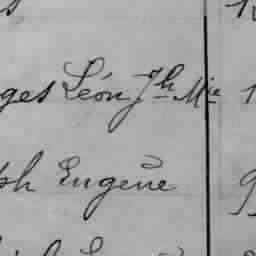 ges Léon Jh Mie
ph Eugène